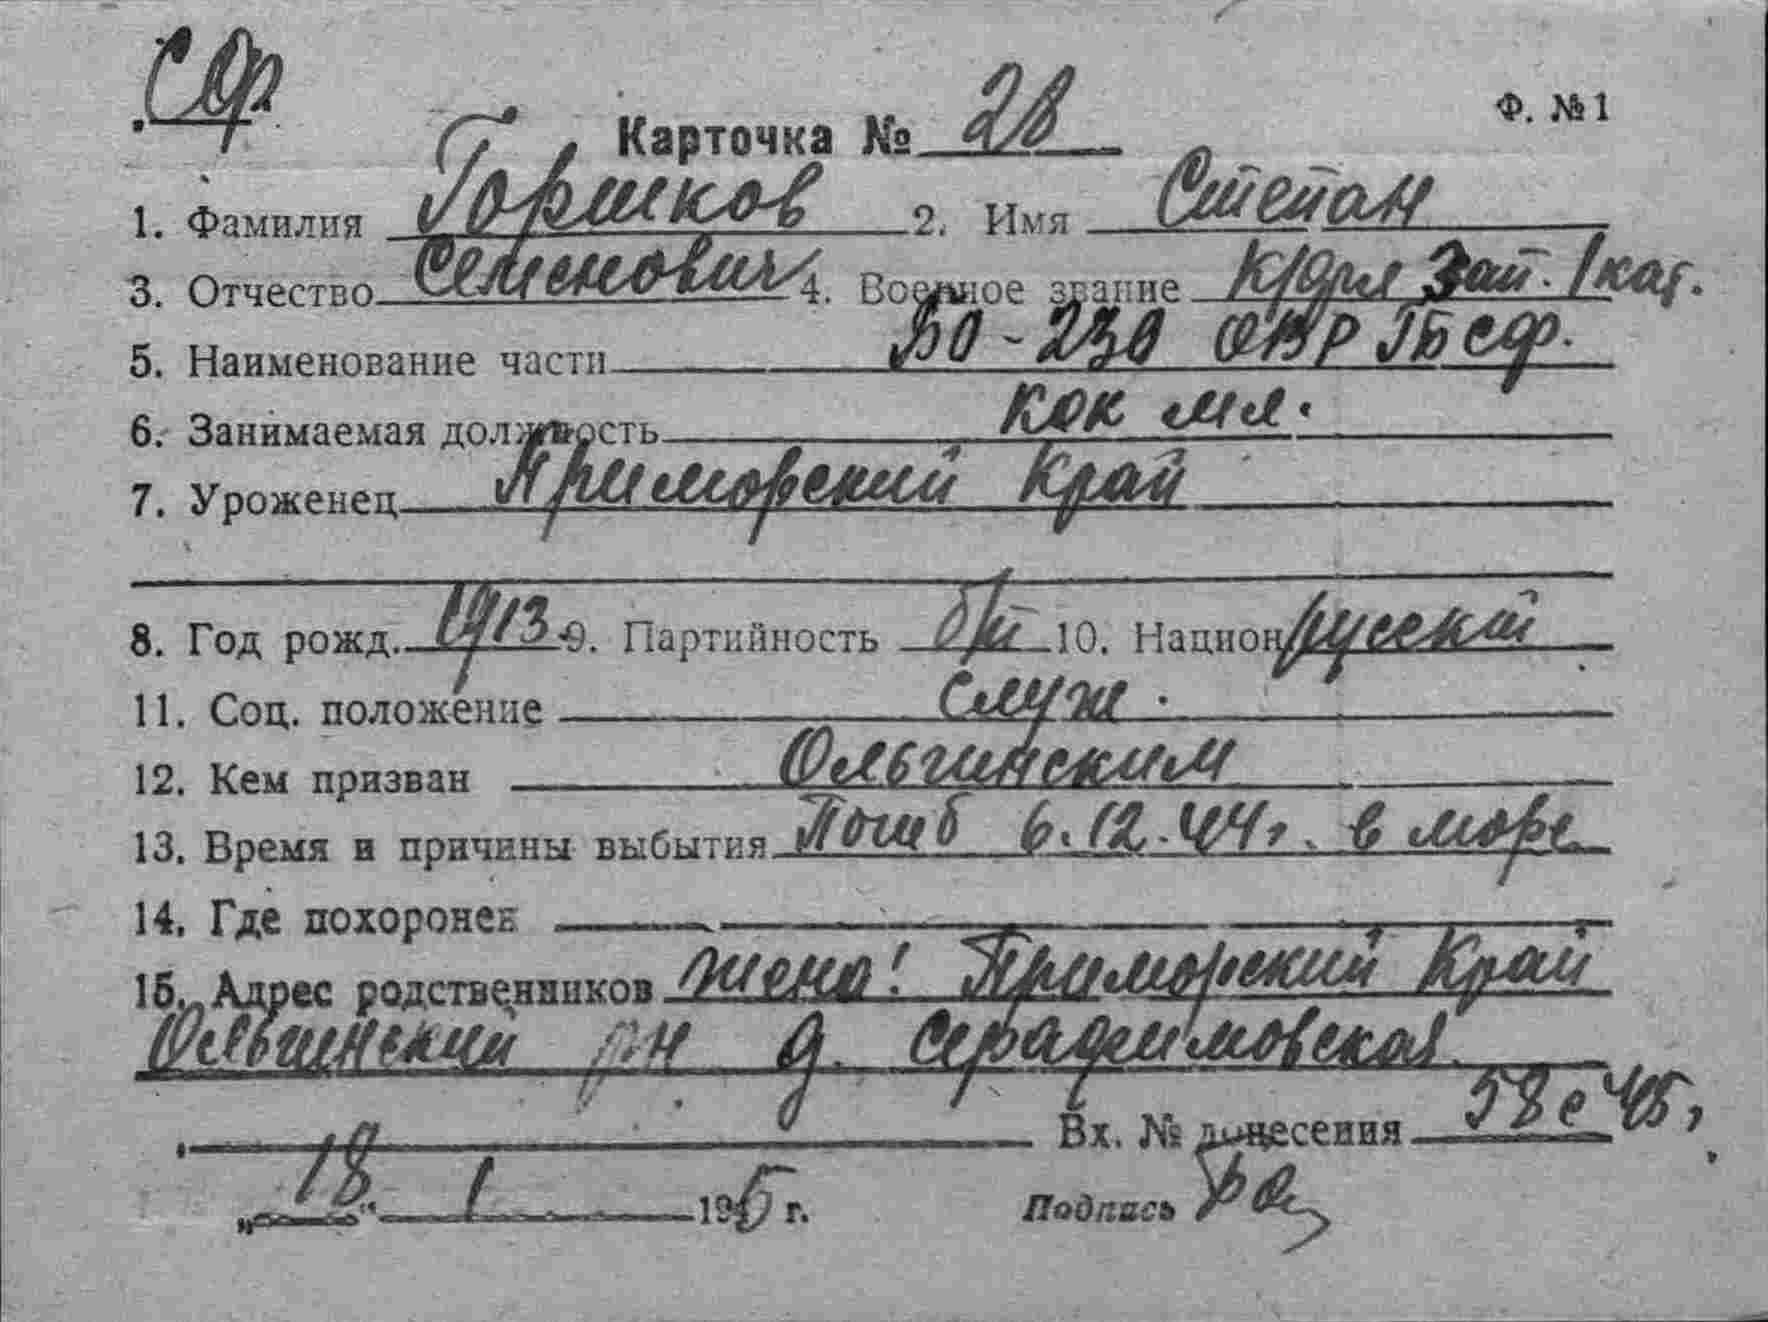 СФ
Ф. №1
Карточка № 28
1. Фамилия Горшков 2. Имя Степан
3. Отчество Семенович 4. Военное звание кр/фл зап. 1 кат.
5. Наименование части БО-230 ОВР ГБ СФ.
6. Занимаемая должность кок мл.
7. Уроженец Приморский край
8. Год рожд. 1913 9. Партийность б/п 10. Национ русский
11. Соц. положение служ.
12. Кем призван Ольгинским
13. Время и причины выбытия Погиб 6.12.44г. в море
14. Где похоронен
15. Адрес родственников жена: Приморский Край
Ольгинский р-н д. Серафимовская
Вх. № донесения 58с 45г
„18“ 1 1945 г. Подпись